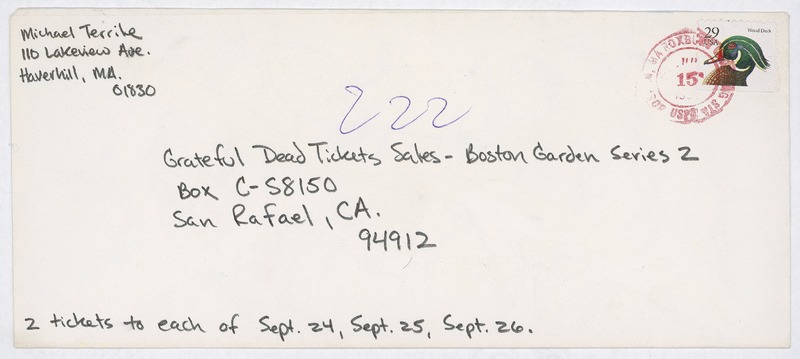 Michael Terrile
110 Lakeview Ave.
Haverhill, MA.
01830
29
USA
Wood Duck
MA ROXBURY
JUL
15
USPS
222
Grateful Dead Tickets Sales - Boston Garden Series 2
Box C-S8150
San Rafael, CA.
94912
2 tickets to each of Sept. 24, Sept. 25, Sept. 26.